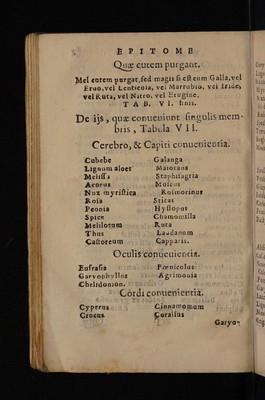 EPITOME
Quæ cutem purgant.
Mel cutem purgat, sed magis si est cum Galla, vel
Eruo, vel Lenticula, vel Marrubio, vel Iride,
vel Ruta, vel Nitro, vel Erugine.
TAB. VI. finis.
De ijs, quæ conueniunt singulis mem-
bris, Tabula VII.
Cerebro, & Capiti conuenientia.
Cubebe Galanga
Lignum aloes Maiorana
Melissa Staphisagria
Acorus Muscus
Nux myristica Rosmorinus
Rosa Sticas
Peonia Hyssopus
Spica Chamomilla
Melilotum Ruta
Thus Laudanum
Castoreum Capparis.
Oculis conuenientia.
Eufrasia Fœniculus
Garyophyllus Agrimonia
Chelidonion.
Cordi conuenientia.
Cyperus Cinnamomum
Crocus Corallus
Garyo-